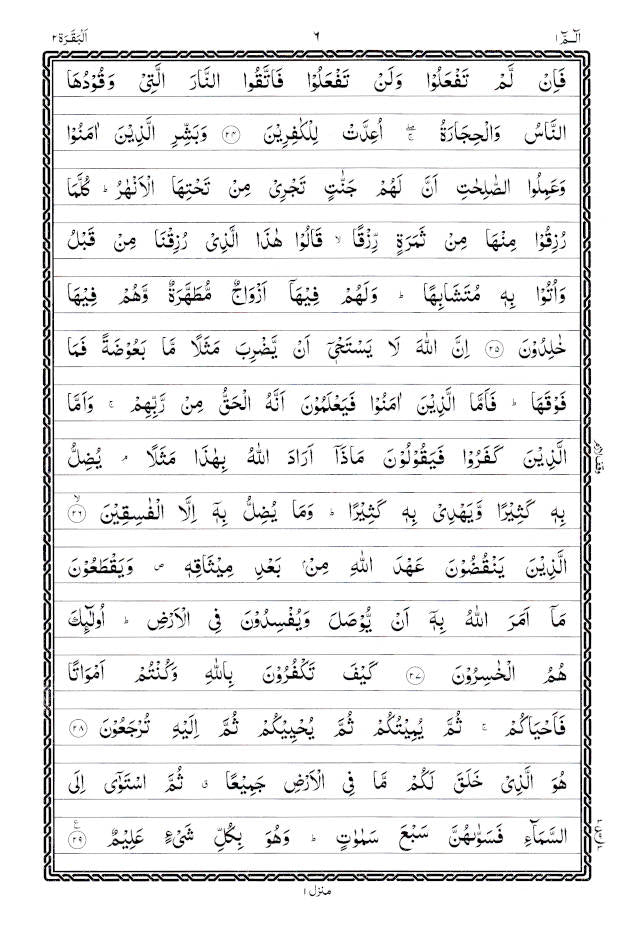 الٓمّٓ ١ ٦ اَلْبَقَرَة ٢
فَاِنْ لَّمْ تَفْعَلُوْا وَلَنْ تَفْعَلُوْا فَاتَّقُوا النَّارَ الَّتِیْ وَقُوْدُهَا
النَّاسُ وَالْحِجَارَةُ ۖۚ اُعِدَّتْ لِلْكٰفِرِیْنَ ٢٤ وَبَشِّرِ الَّذِیْنَ اٰمَنُوْا
وَعَمِلُوا الصّٰلِحٰتِ اَنَّ لَهُمْ جَنّٰتٍ تَجْرِیْ مِنْ تَحْتِهَا الْاَنْهٰرُ ؕ كُلَّمَا
رُزِقُوْا مِنْهَا مِنْ ثَمَرَةٍ رِّزْقًا ۙ قَالُوْا هٰذَا الَّذِیْ رُزِقْنَا مِنْ قَبْلُ
وَاُتُوْا بِهٖ مُتَشَابِهًا ؕ وَلَهُمْ فِیْهَاۤ اَزْوَاجٌ مُّطَهَّرَةٌ وَّهُمْ فِیْهَا
خٰلِدُوْنَ ٢٥ اِنَّ اللّٰهَ لَا یَسْتَحْیٖۤ اَنْ یَّضْرِبَ مَثَلًا مَّا بَعُوْضَةً فَمَا
فَوْقَهَا ؕ فَاَمَّا الَّذِیْنَ اٰمَنُوْا فَیَعْلَمُوْنَ اَنَّهُ الْحَقُّ مِنْ رَّبِّهِمْ ۚ وَاَمَّا
الَّذِیْنَ كَفَرُوْا فَیَقُوْلُوْنَ مَاذَاۤ اَرَادَ اللّٰهُ بِهٰذَا مَثَلًا ۘ یُضِلُّ
بِهٖ كَثِیْرًا وَّیَهْدِیْ بِهٖ كَثِیْرًا ؕ وَمَا یُضِلُّ بِهٖۤ اِلَّا الْفٰسِقِیْنَ ٢٦ۙ
الَّذِیْنَ یَنْقُضُوْنَ عَهْدَ اللّٰهِ مِنْۢ بَعْدِ مِیْثَاقِهٖ ۪ وَیَقْطَعُوْنَ
مَاۤ اَمَرَ اللّٰهُ بِهٖۤ اَنْ یُّوْصَلَ وَیُفْسِدُوْنَ فِی الْاَرْضِ ؕ اُولٰٓئِكَ
هُمُ الْخٰسِرُوْنَ ٢٧ كَیْفَ تَكْفُرُوْنَ بِاللّٰهِ وَكُنْتُمْ اَمْوَاتًا
فَاَحْیَاكُمْ ۚ ثُمَّ یُمِیْتُكُمْ ثُمَّ یُحْیِیْكُمْ ثُمَّ اِلَیْهِ تُرْجَعُوْنَ ٢٨
هُوَ الَّذِیْ خَلَقَ لَكُمْ مَّا فِی الْاَرْضِ جَمِیْعًا ۗ ثُمَّ اسْتَوٰۤی اِلَی
السَّمَآءِ فَسَوّٰىهُنَّ سَبْعَ سَمٰوٰتٍ ؕ وَهُوَ بِكُلِّ شَیْءٍ عَلِیْمٌ ٢٩
منزل ١